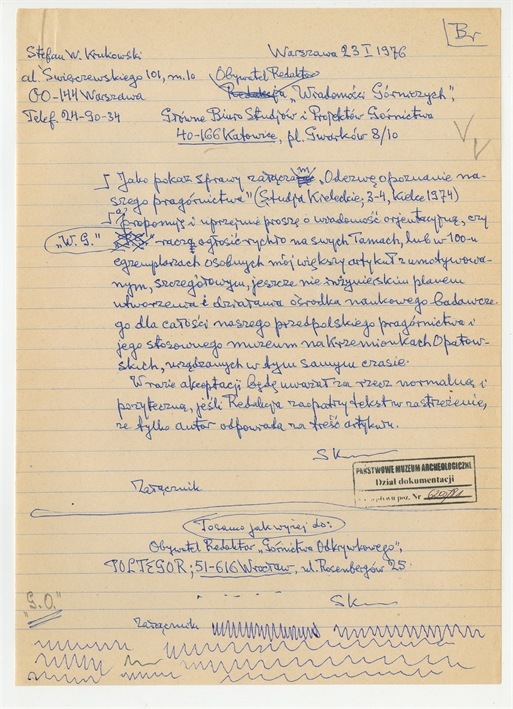 Br
Stefan W. Krukowski
Warszawa 23 I 1976
al. Świerczewskiego 101, m. 10
Obywatel Redaktor
00-144 Warszawa
Redakcja „Wiadomości Górniczych",
Telef. 24-90-34
Główne Biuro Studjów i Projektów Górnictwa
40-166 Katowice, pl. Gwarków 8/10
Jako pokaz sprawy załączam „Odezwę o poznanie na-
szego pragórnictwa" (Studja Kieleckie, 3-4, Kielce 1974)
i uprzejmie proszę o wiadomość orjentacyjną, czy
„W. G." raczą ogłosić rychło na swych łamach, lub w 100-u
egzemplarzach osobnych mój większy artykuł z umotywowa-
nym, szczegółowym, jeszcze nie inżynierskim planem
utworzenia i działania ośrodka naukowego badawcze-
go dla całości naszego przedpolskiego pragórnictwa i
jego stosownego muzeum na Krzemionkach Opatow-
skich, urządzanych w tym samym czasie.
W razie akceptacji będę uważał za rzecz normalną i
pożyteczną, jeśli Redakcja zaopatrzy tekst w zastrzeżenie,
że tylko autor odpowiada za treść artykułu.
SK
PAŃSTWOWE MUZEUM ARCHEOLOGICZNE
Dział dokumentacji
poz. Nr
Załącznik
Tosamo jak wyżej do:
Obywatel Redaktor „Górnictwa Odkrywkowego",
POLTEGOR; 51-616 Wrocław, ul. Rosenbergów 25
„G.O."
SK
Załącznik